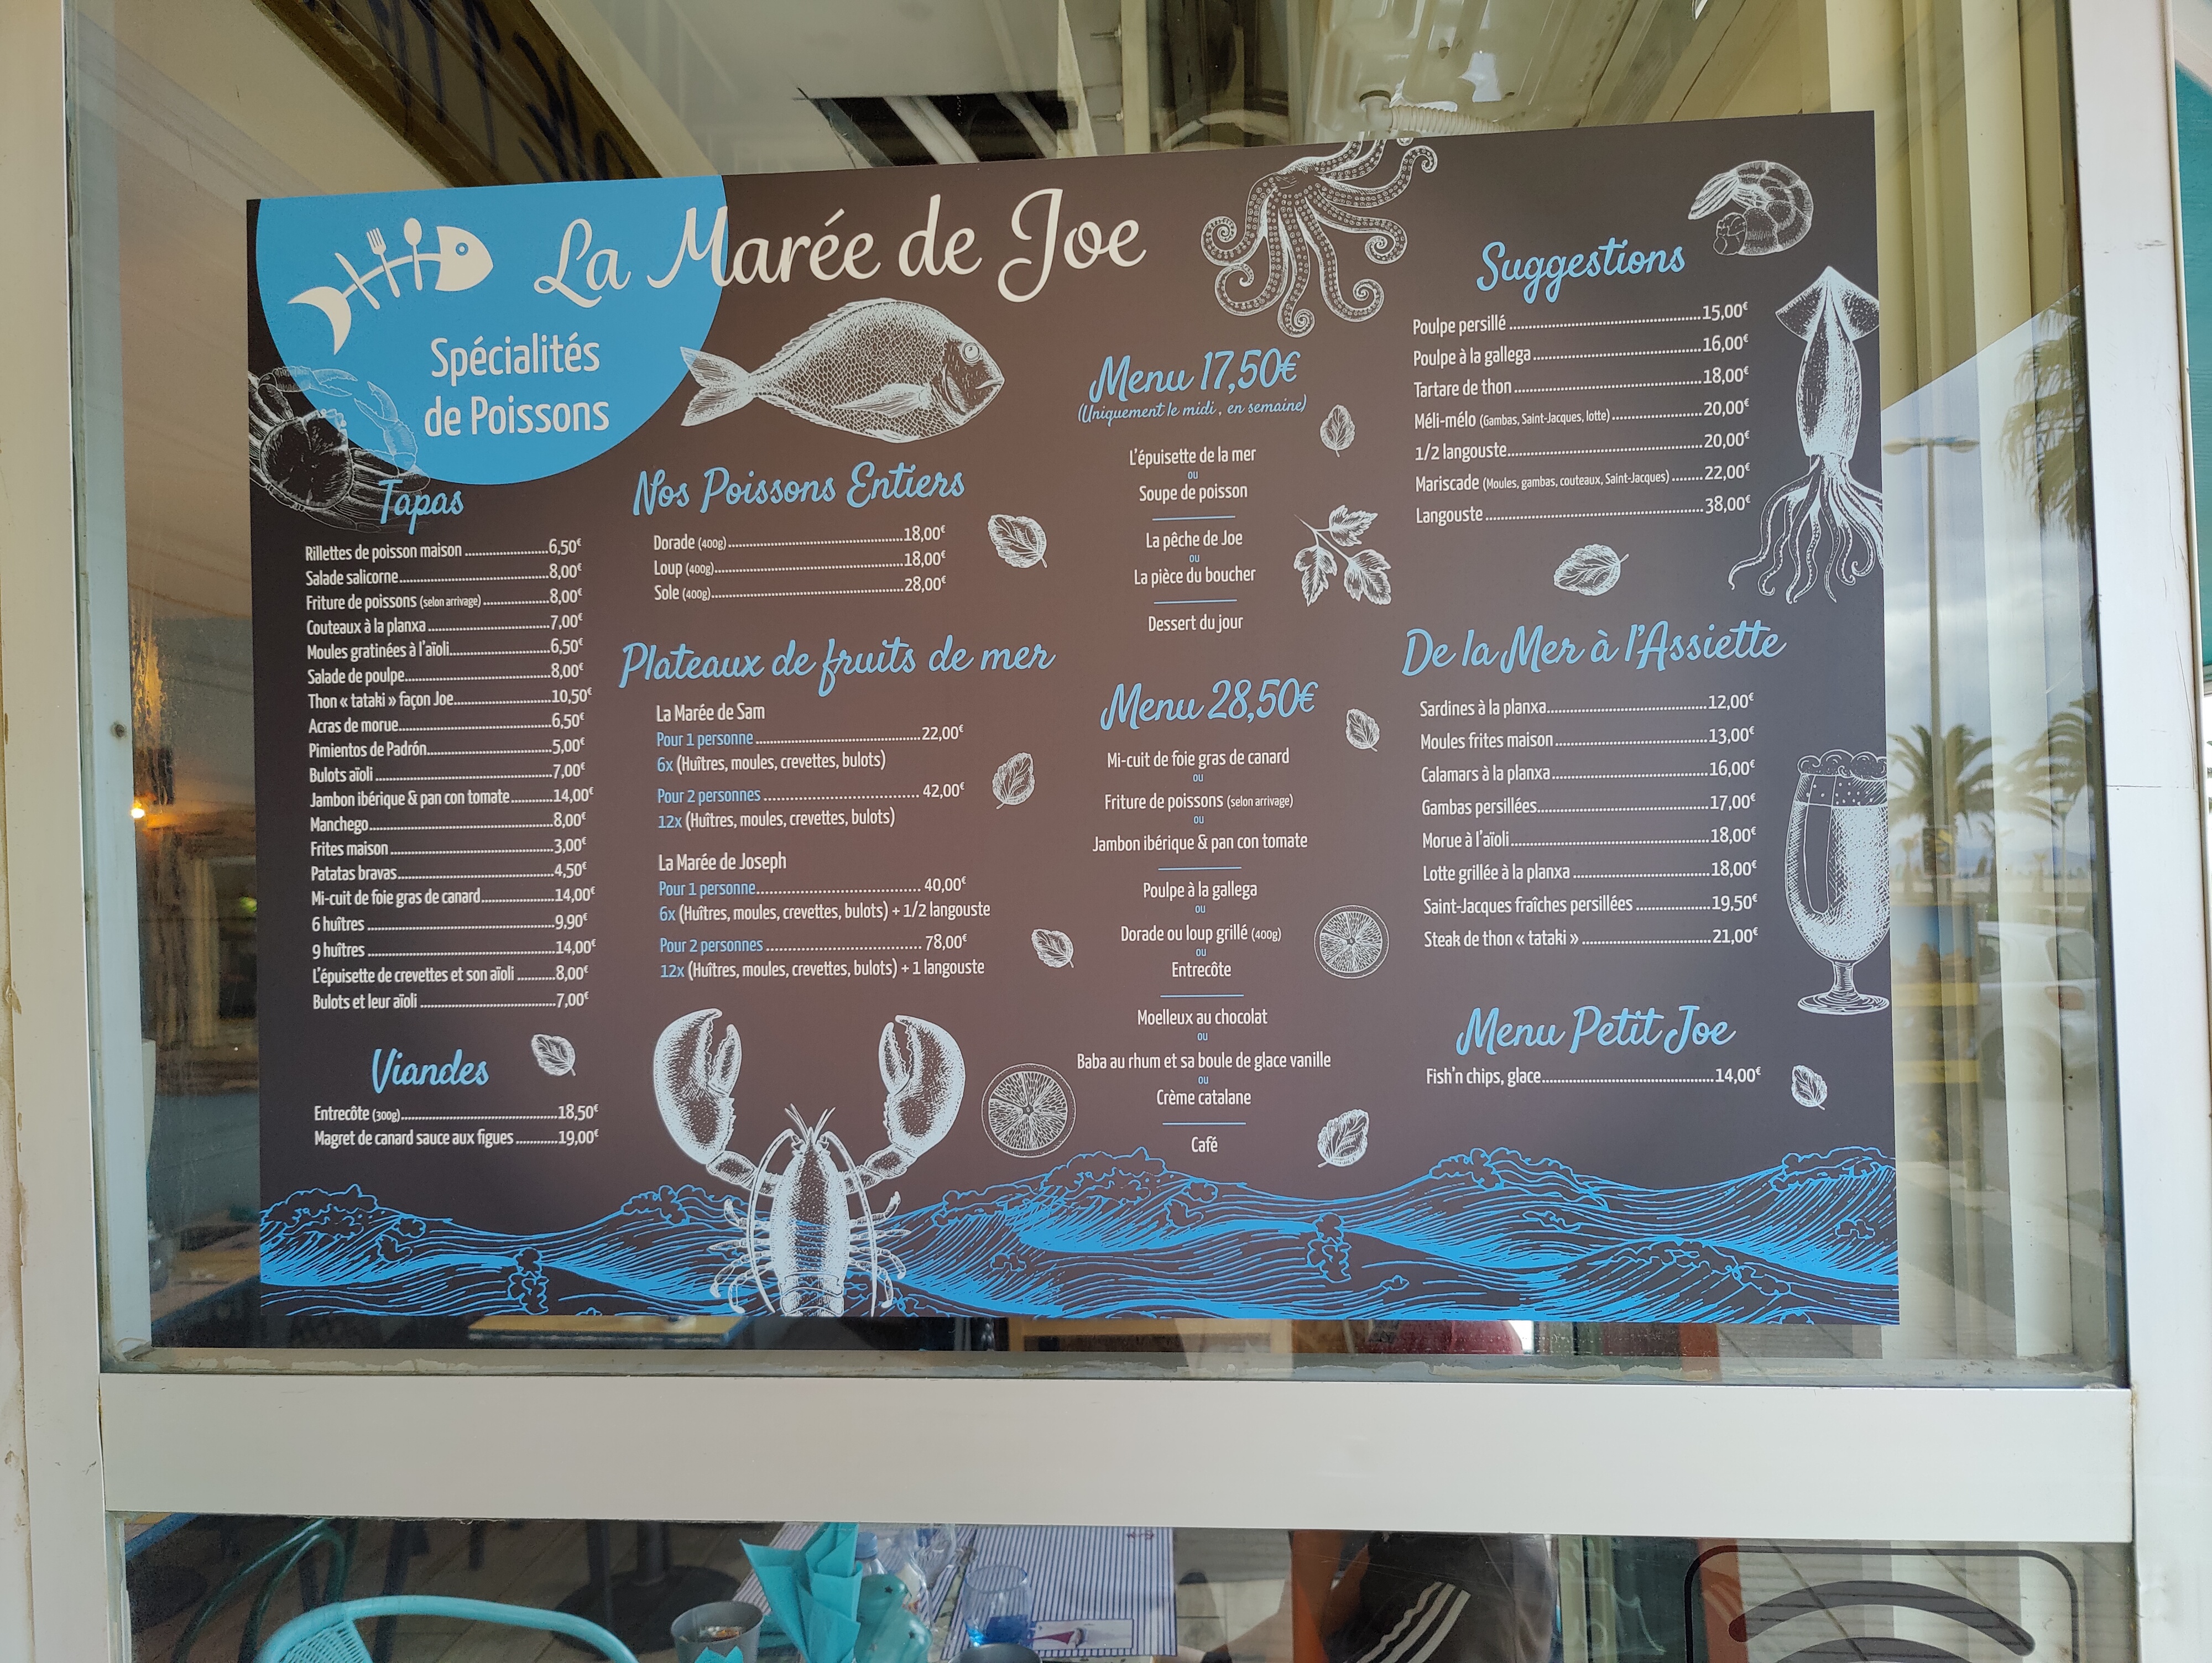 La Marée de Joe
Spécialités
de Poissons
Tapas
Rillettes de poisson maison ........ 6,50€
Salade salicorne ........ 8,00€
Friture de poissons (selon arrivage) ........ 8,00€
Couteaux à la planxa ........ 7,00€
Moules gratinées à l'aïoli ........ 6,50€
Salade de poulpe ........ 8,00€
Thon « tataki » façon Joe ........ 10,50€
Acras de morue ........ 6,50€
Pimientos de Padrón ........ 5,00€
Bulots aïoli ........ 7,00€
Jambon ibérique & pan con tomate ........ 14,00€
Manchego ........ 8,00€
Frites maison ........ 3,00€
Patatas bravas ........ 4,50€
Mi-cuit de foie gras de canard ........ 14,00€
6 huîtres ........ 9,90€
9 huîtres ........ 14,00€
L'épuisette de crevettes et son aïoli ........ 8,00€
Bulots et leur aïoli ........ 7,00€
Viandes
Entrecôte (300g) ........ 18,50€
Magret de canard sauce aux figues ........ 19,00€
Nos Poissons Entiers
Dorade (400g) ........ 18,00€
Loup (400g) ........ 18,00€
Sole (400g) ........ 28,00€
Plateaux de fruits de mer
La Marée de Sam
Pour 1 personne ........ 22,00€
6x (Huîtres, moules, crevettes, bulots)
Pour 2 personnes ........ 42,00€
12x (Huîtres, moules, crevettes, bulots)
La Marée de Joseph
Pour 1 personne ........ 40,00€
6x (Huîtres, moules, crevettes, bulots) + 1/2 langouste
Pour 2 personnes ........ 78,00€
12x (Huîtres, moules, crevettes, bulots) + 1 langouste
Menu 17,50€
(Uniquement le midi, en semaine)
L'épuisette de la mer
ou
Soupe de poisson
La pêche de Joe
ou
La pièce du boucher
Dessert du jour
Menu 28,50€
Mi-cuit de foie gras de canard
ou
Friture de poissons (selon arrivage)
ou
Jambon ibérique & pan con tomate
Poulpe à la gallega
ou
Dorade ou loup grillé (400g)
ou
Entrecôte
Moelleux au chocolat
ou
Baba au rhum et sa boule de glace vanille
ou
Crème catalane
Café
Suggestions
Poulpe persillé ........ 15,00€
Poulpe à la gallega ........ 16,00€
Tartare de thon ........ 18,00€
Méli-mélo (Gambas, Saint-Jacques, lotte) ........ 20,00€
1/2 langouste ........ 20,00€
Mariscade (Moules, gambas, couteaux, Saint-Jacques) ........ 22,00€
Langouste ........ 38,00€
De la Mer à l'Assiette
Sardines à la planxa ........ 12,00€
Moules frites maison ........ 13,00€
Calamars à la planxa ........ 16,00€
Gambas persillées ........ 17,00€
Morue à l'aïoli ........ 18,00€
Lotte grillée à la planxa ........ 18,00€
Saint-Jacques fraîches persillées ........ 19,50€
Steak de thon « tataki » ........ 21,00€
Menu Petit Joe
Fish'n chips, glace ........ 14,00€